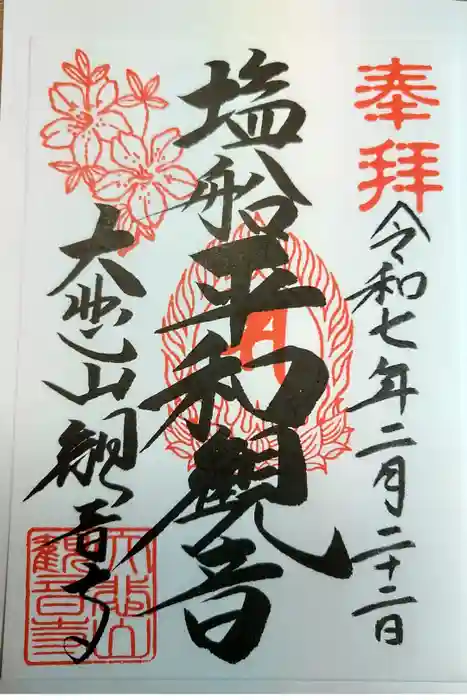 奉拝
令和七年二月二十二日
塩船平和観音
大悲山観音寺
大悲山
観音寺